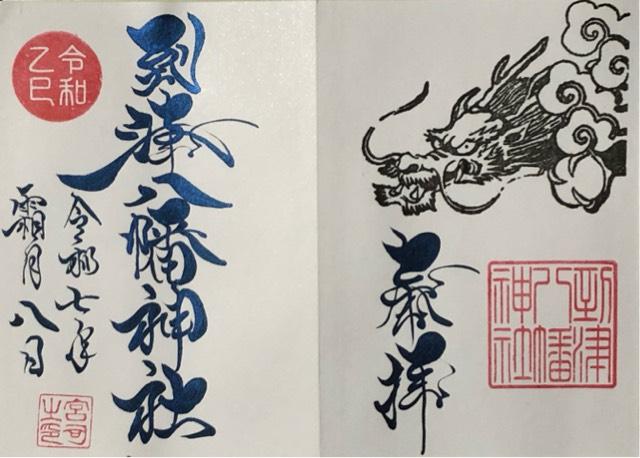 奉拝
到津
八幡
神社
到津八幡神社
令和七年
霜月八日
令和
乙巳
宮司
之印